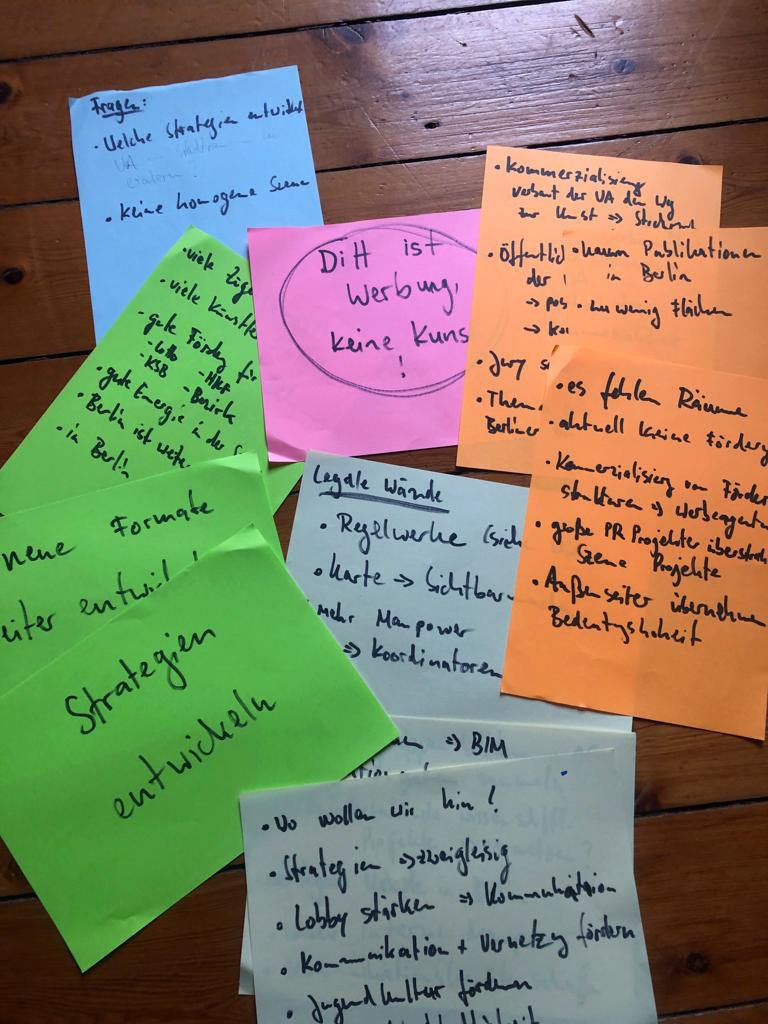 Fragen:
• Welche Strategien entwickel
• keine homogene Szene
• viele Züge
• viele Künstle
• gute Förderg für
- Lotto - HKF
- KSB - Bezirk
• gute Energie in der S
• Berlin ist weite
• in Berlin
Ditt ist
Werbung,
keine Kuns
!
• Kommerzialisierg
verbaut der UA den Weg
zur Kunst =>
• Öffentlic
der
-> pos
->
• Jury s
• Them
Berliner
• kaum Publikationen
in Berlin
• zu wenig Flächen
• es fehlen Räume
• aktuell keine Förderg
• Kommerzialisierg von Förder
strukturen => Werbeagentu
• große PR Projekter überstrah
Szene Projekte
• Außenseiter übernehmen
Bedeutungshoheit
neue Formate
eiter entwick
Strategien
entwickeln
Legale Wände
• Regelwerke
• Karte => Sichtbar
mehr Manpower
=> Koordinatoren
=> BIM
• Wo wollen wir hin?
• Strategien => zweigleisig
• Lobby stärken => Kommunikation
• Kommunikation + Vernetzg fördern
• Jugendkultur fördern